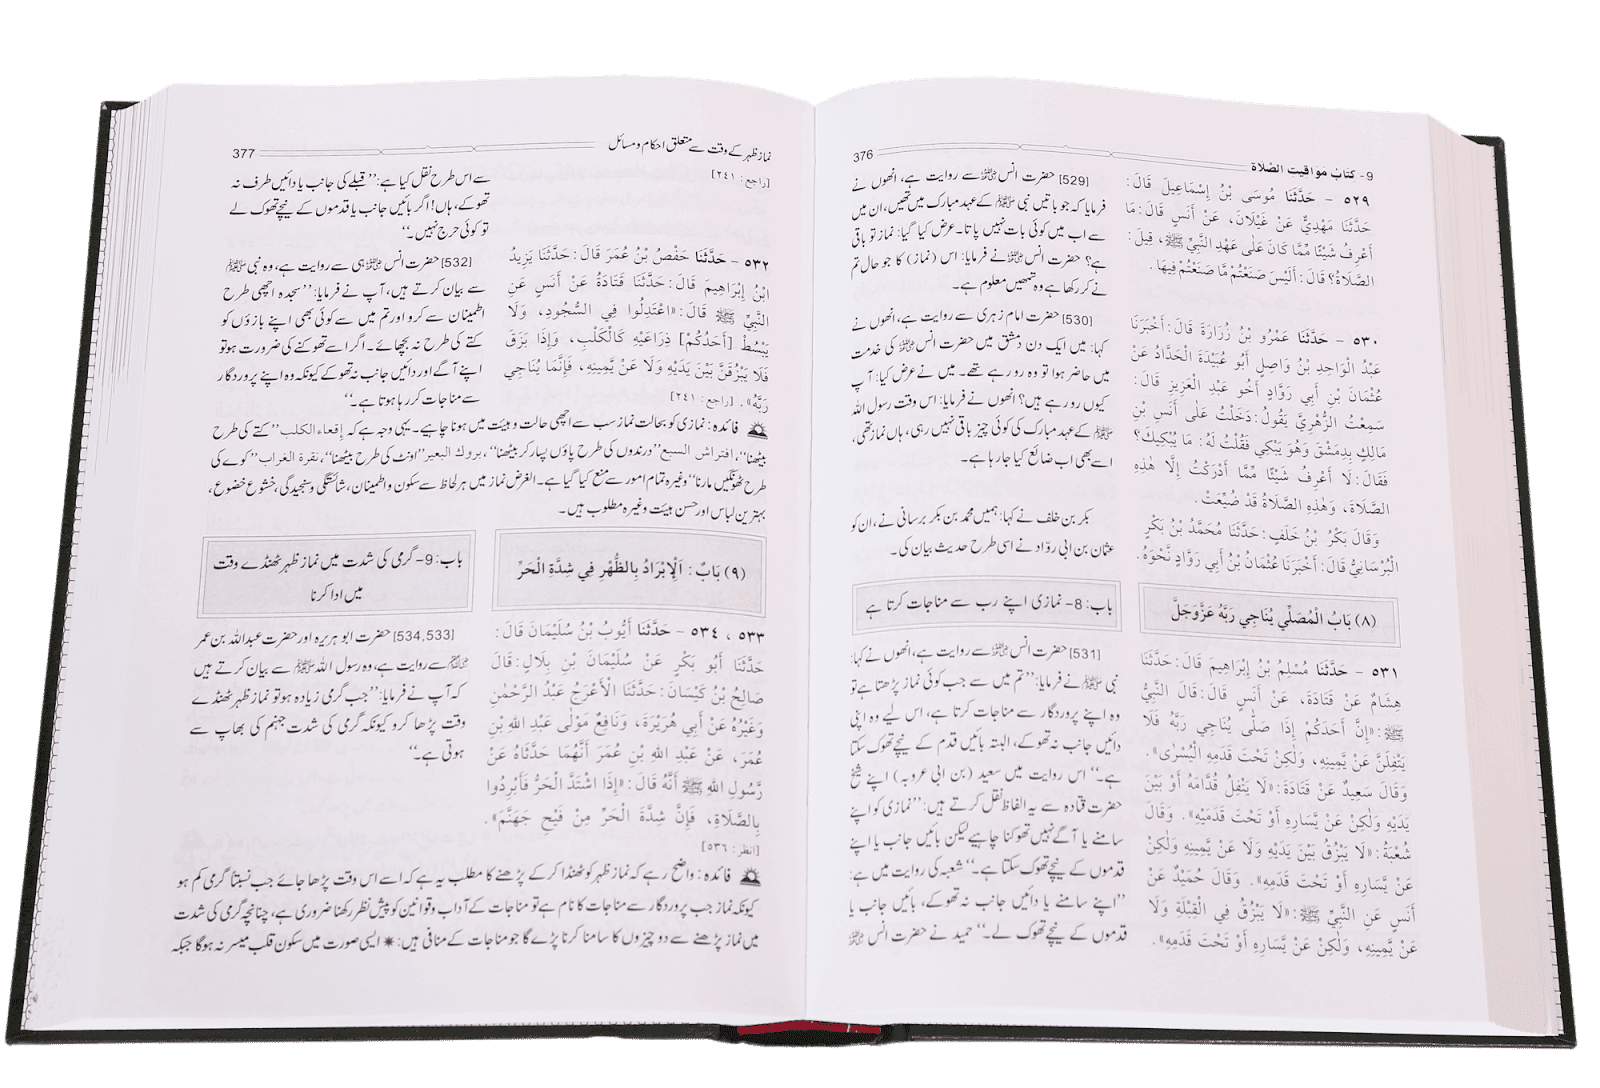 9- كتابُ مَوَاقيتِ الصَّلاة
376
٥٢٩ - حَدَّثَنَا مُوسَى بْنُ إِسْمَاعِيلَ قَالَ:
حَدَّثَنَا مَهْدِيٌّ عَنْ غَيْلَانَ، عَنْ أَنَسٍ قَالَ: مَا
أَعْرِفُ شَيْئًا مِّمَّا كَانَ عَلَى عَهْدِ النَّبِيِّ ﷺ، قِيلَ:
الصَّلَاةُ؟ قَالَ: أَلَيْسَ صَنَعْتُمْ مَّا صَنَعْتُمْ فِيهَا.
٥٣٠ - حَدَّثَنَا عَمْرُو بْنُ زُرَارَةَ قَالَ: أَخْبَرَنَا
عَبْدُ الْوَاحِدِ بْنُ وَاصِلٍ أَبُو عُبَيْدَةَ الْحَدَّادُ عَنْ
عُثْمَانَ بْنِ أَبِي رَوَّادٍ أَخُو عَبْدِ الْعَزِيزِ قَالَ:
سَمِعْتُ الزُّهْرِيَّ يَقُولُ: دَخَلْتُ عَلَى أَنَسِ بْنِ
مَالِكٍ بِدِمَشْقَ وَهُوَ يَبْكِي فَقُلْتُ لَهُ: مَا يُبْكِيكَ؟
فَقَالَ: لَا أَعْرِفُ شَيْئًا مِّمَّا أَدْرَكْتُ إِلَّا هٰذِهِ
الصَّلَاةَ، وَهٰذِهِ الصَّلَاةُ قَدْ ضُيِّعَتْ.
وَقَالَ بَكْرُ بْنُ خَلَفٍ: حَدَّثَنَا مُحَمَّدُ بْنُ بَكْرٍ
الْبُرْسَانِيُّ قَالَ: أَخْبَرَنَا عُثْمَانُ بْنُ أَبِي رَوَّادٍ نَحْوَهُ.
(٨) بَابُ الْمُصَلِّي يُنَاجِي رَبَّهُ عَزَّوَجَلَّ
٥٣١ - حَدَّثَنَا مُسْلِمُ بْنُ إِبْرَاهِيمَ قَالَ: حَدَّثَنَا
هِشَامٌ عَنْ قَتَادَةَ، عَنْ أَنَسٍ قَالَ: قَالَ النَّبِيُّ
ﷺ: «إِنَّ أَحَدَكُمْ إِذَا صَلَّى يُنَاجِي رَبَّهُ فَلَا
يَتْفِلَنَّ عَنْ يَّمِينِهِ، وَلٰكِنْ تَحْتَ قَدَمِهِ الْيُسْرَى».
وَقَالَ سَعِيدٌ عَنْ قَتَادَةَ: «لَا يَتْفِلُ قُدَّامَهُ أَوْ بَيْنَ
يَدَيْهِ وَلٰكِنْ عَنْ يَّسَارِهِ أَوْ تَحْتَ قَدَمَيْهِ». وَقَالَ
شُعْبَةُ: «لَا يَبْزُقُ بَيْنَ يَدَيْهِ وَلَا عَنْ يَّمِينِهِ وَلٰكِنْ
عَنْ يَّسَارِهِ أَوْ تَحْتَ قَدَمِهِ». وَقَالَ حُمَيْدٌ عَنْ
أَنَسٍ عَنِ النَّبِيِّ ﷺ: «لَا يَبْزُقُ فِي الْقِبْلَةِ وَلَا
عَنْ يَّمِينِهِ، وَلٰكِنْ عَنْ يَّسَارِهِ أَوْ تَحْتَ قَدَمِهِ».
[529] حضرت انس ؓ سے روایت ہے، انھوں نے
فرمایا کہ جو باتیں نبی ﷺ کے عہد مبارک میں تھیں، ان میں
سے اب میں کوئی بات نہیں پاتا۔ عرض کیا گیا: نماز تو باقی
ہے؟ حضرت انس ؓ نے فرمایا: اس (نماز) کا جو حال تم
نے کر رکھا ہے وہ تمھیں معلوم ہے۔
[530] حضرت امام زہری سے روایت ہے، انھوں نے
کہا: میں ایک دن دمشق میں حضرت انس ؓ کی خدمت
میں حاضر ہوا تو وہ رو رہے تھے۔ میں نے عرض کیا: آپ
کیوں رو رہے ہیں؟ انھوں نے فرمایا: اس وقت رسول اللہ
ﷺ کے عہد مبارک کی کوئی چیز باقی نہیں رہی، ہاں نماز تھی،
اسے بھی اب ضائع کیا جا رہا ہے۔
بکر بن خلف نے کہا: ہمیں محمد بن بکر برسانی نے، ان کو
عثمان بن ابی روّاد نے اسی طرح حدیث بیان کی۔
باب: 8- نمازی اپنے رب سے مناجات کرتا ہے
[531] حضرت انس ؓ سے روایت ہے، انھوں نے کہا:
نبی ﷺ نے فرمایا: ’’تم میں سے جب کوئی نماز پڑھتا ہے تو
وہ اپنے پروردگار سے مناجات کرتا ہے، اس لیے وہ اپنی
دائیں جانب نہ تھوکے، البتہ بائیں قدم کے نیچے تھوک سکتا
ہے۔‘‘ اس روایت میں سعید (بن ابی عروبہ) اپنے شیخ
حضرت قتادہ سے یہ الفاظ نقل کرتے ہیں: ’’نمازی کو اپنے
سامنے یا آگے نہیں تھوکنا چاہیے لیکن بائیں جانب یا اپنے
قدموں کے نیچے تھوک سکتا ہے۔‘‘ شعبہ کی روایت میں ہے:
’’اپنے سامنے یا دائیں جانب نہ تھوکے، بائیں جانب یا
قدموں کے نیچے تھوک لے۔‘‘ حمید نے حضرت انس ؓ
نماز ظہر کے وقت سے متعلق احکام و مسائل
377
[راجع: ٢٤١]
٥٣٢ - حَدَّثَنَا حَفْصُ بْنُ عُمَرَ قَالَ: حَدَّثَنَا يَزِيدُ
ابْنُ إِبْرَاهِيمَ قَالَ: حَدَّثَنَا قَتَادَةُ عَنْ أَنَسٍ عَنِ
النَّبِيِّ ﷺ قَالَ: «اعْتَدِلُوا فِي السُّجُودِ، وَلَا
يَبْسُطْ [أَحَدُكُمْ] ذِرَاعَيْهِ كَالْكَلْبِ، وَإِذَا بَزَقَ
فَلَا يَبْزُقَنَّ بَيْنَ يَدَيْهِ وَلَا عَنْ يَّمِينِهِ، فَإِنَّمَا يُنَاجِي
رَبَّهُ». [راجع: ٢٤١]
سے اس طرح نقل کیا ہے: ’’قبلے کی جانب یا دائیں طرف نہ
تھوکے، ہاں! اگر بائیں جانب یا قدموں کے نیچے تھوک لے
تو کوئی حرج نہیں۔‘‘
[532] حضرت انس ؓ ہی سے روایت ہے، وہ نبی ﷺ
سے بیان کرتے ہیں، آپ نے فرمایا: ’’سجدہ اچھی طرح
اطمینان سے کرو اور تم میں سے کوئی بھی اپنے بازوؤں کو
کتے کی طرح نہ بچھائے۔ اگر اسے تھوکنے کی ضرورت ہو تو
اپنے آگے اور دائیں جانب نہ تھوکے کیونکہ وہ اپنے پروردگار
سے مناجات کر رہا ہوتا ہے۔‘‘
فائدہ: نمازی کو بحالت نماز سب سے اچھی حالت و ہیئت میں ہونا چاہیے۔ یہی وجہ ہے کہ إقعاء الكلب ’’کتے کی طرح
بیٹھنا‘‘، افتراش السبع ’’درندوں کی طرح پاؤں پسار کر بیٹھنا‘‘، بروك البعير ’’اونٹ کی طرح بیٹھنا‘‘، نقرة الغراب ’’کوے کی
طرح ٹھونگیں مارنا‘‘ وغیرہ تمام امور سے منع کیا گیا ہے۔ الغرض نماز میں ہر لحاظ سے سکون و اطمینان، شائستگی و سنجیدگی، خشوع خضوع،
بہترین لباس اور حسن ہیئت وغیرہ مطلوب ہیں۔
(٩) بَابٌ: اَلْإِبْرَادُ بِالظُّهْرِ فِي شِدَّةِ الْحَرِّ
باب: 9- گرمی کی شدت میں نماز ظہر ٹھنڈے وقت
میں ادا کرنا
٥٣٣، ٥٣٤ - حَدَّثَنَا أَيُّوبُ بْنُ سُلَيْمَانَ قَالَ:
حَدَّثَنَا أَبُو بَكْرٍ عَنْ سُلَيْمَانَ بْنِ بِلَالٍ: قَالَ
صَالِحُ بْنُ كَيْسَانَ: حَدَّثَنَا الْأَعْرَجُ عَبْدُ الرَّحْمٰنِ
وَغَيْرُهُ عَنْ أَبِي هُرَيْرَةَ، وَنَافِعٌ مَوْلَى عَبْدِ اللهِ بْنِ
عُمَرَ، عَنْ عَبْدِ اللهِ بْنِ عُمَرَ أَنَّهُمَا حَدَّثَاهُ عَنْ
رَّسُولِ اللهِ ﷺ أَنَّهُ قَالَ: «إِذَا اشْتَدَّ الْحَرُّ فَأَبْرِدُوا
بِالصَّلَاةِ، فَإِنَّ شِدَّةَ الْحَرِّ مِنْ فَيْحِ جَهَنَّمَ».
[انظر: ٥٣٦]
[534,533] حضرت ابو ہریرہ اور حضرت عبداللہ بن عمر
ؓ سے روایت ہے، وہ رسول اللہ ﷺ سے بیان کرتے ہیں
کہ آپ نے فرمایا: ’’جب گرمی زیادہ ہو تو نماز ظہر ٹھنڈے
وقت پڑھا کرو کیونکہ گرمی کی شدت جہنم کی بھاپ سے
ہوتی ہے۔‘‘
فائدہ: واضح رہے کہ نماز ظہر کو ٹھنڈا کر کے پڑھنے کا مطلب یہ ہے کہ اسے اس وقت پڑھا جائے جب نسبتاً گرمی کم ہو
کیونکہ نماز جب پروردگار سے مناجات کا نام ہے تو مناجات کے آداب و قوانین کو پیش نظر رکھنا ضروری ہے، چنانچہ گرمی کی شدت
میں نماز پڑھنے سے دو چیزوں کا سامنا کرنا پڑے گا جو مناجات کے منافی ہیں: * ایسی صورت میں سکون قلب میسر نہ ہوگا جبکہ